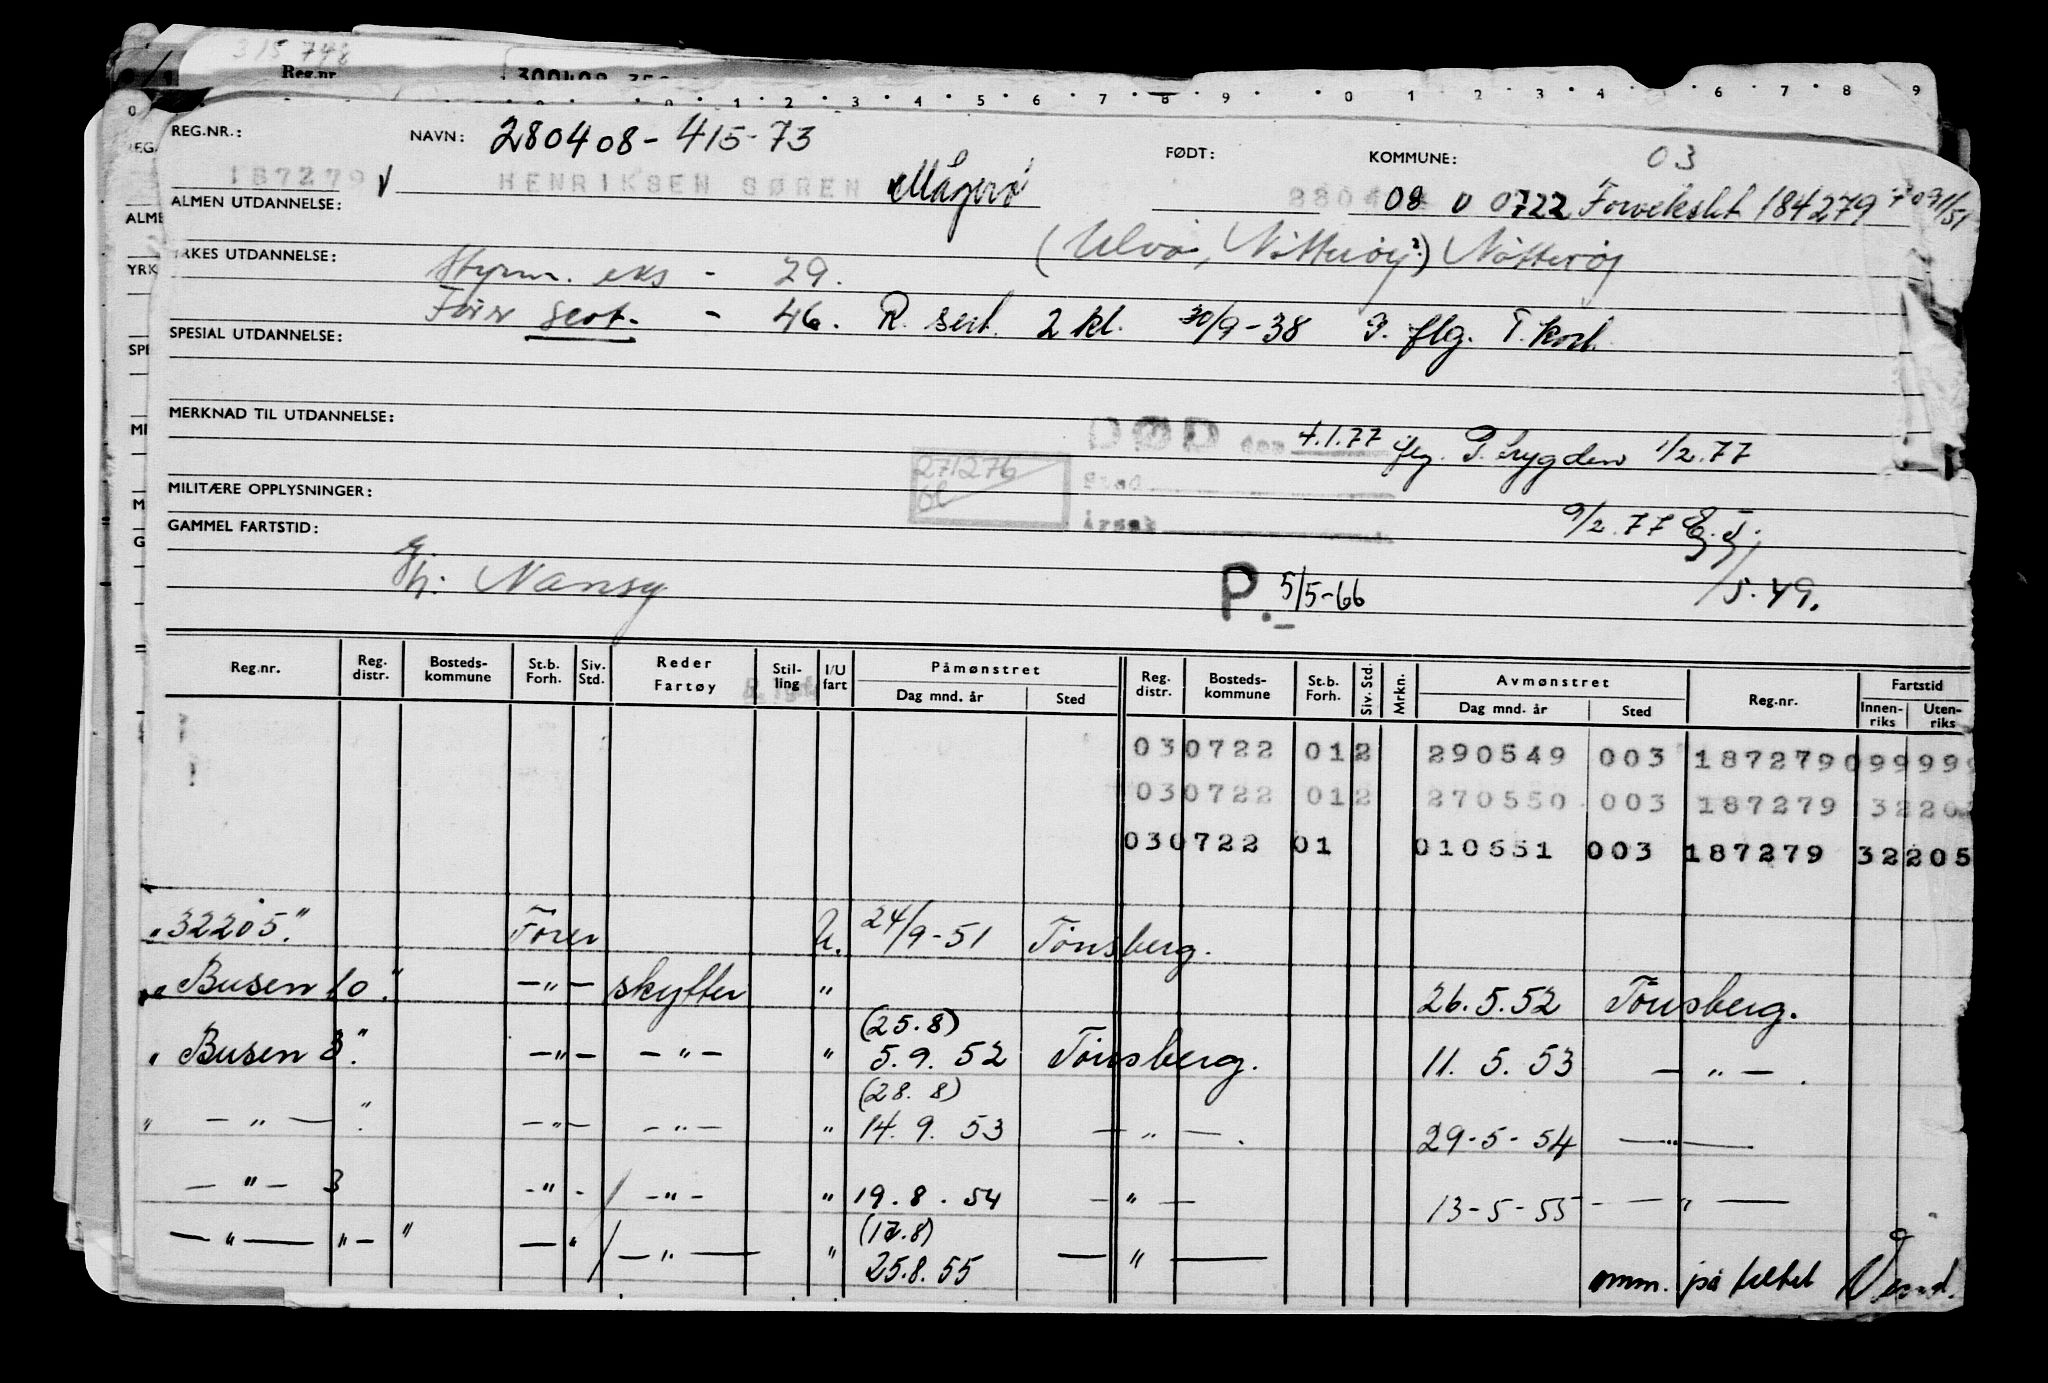 315 748
Reg.nr.
REG.NR.: NAVN: 280408-415-73 FØDT: KOMMUNE: 03
187279 HENRIKSEN SØREN Mågerø 08 0722 Forvekslet 184279
ALMEN UTDANNELSE:
(Ulvø, Nøtterøy?) Nøtterøy
YRKES UTDANNELSE: Styrm. eks - 29.
Fører sert. - 46. R. sert. 2 kl. 30/9-38 P. flg. T. kort.
SPESIAL UTDANNELSE:
MERKNAD TIL UTDANNELSE:
DØD den 4.1.77 flg. P. trygden 1/2.77
271276
Sted
MILITÆRE OPPLYSNINGER:
Årsak
9/2.77
GAMMEL FARTSTID:
Gj.h. Nansy P. 5/5-66 /5.49.
Reg.nr. Reg. distr. Bosteds-kommune St.b. Forh. Siv. Std. Reder Fartøy Stil-ling I/U fart Påmønstret Dag mnd. år Sted Reg. distr. Bosteds-kommune St.b. Forh. Siv. Std. Mrkn. Avmønstret Dag mnd. år Sted Reg.nr. Fartstid Innen-riks Uten-riks
030722 012 290549 003 187279099999
030722 012 270550 003 187279 3220
030722 01 010651 003 187279 32205
"32205." Fører U. 24/9-51 Tönsberg.
"Busen 10." —"— skytter " 26.5.52 Tönsberg.
(25.8)
"Busen 3." —"— —"— " 5.9.52 Tönsberg. 11.5.53 —"—.
(28.8)
" —"— ". —"— —"— " 14.9.53 —"—. 29-5-54 —"—
—"— 3 -"- / -"- " 19.8.54 —"— 13-5-55 —"—
(17.8)
—"— "— " —" / —"— " 25.8.55 —"— omm. på feltet Vend.